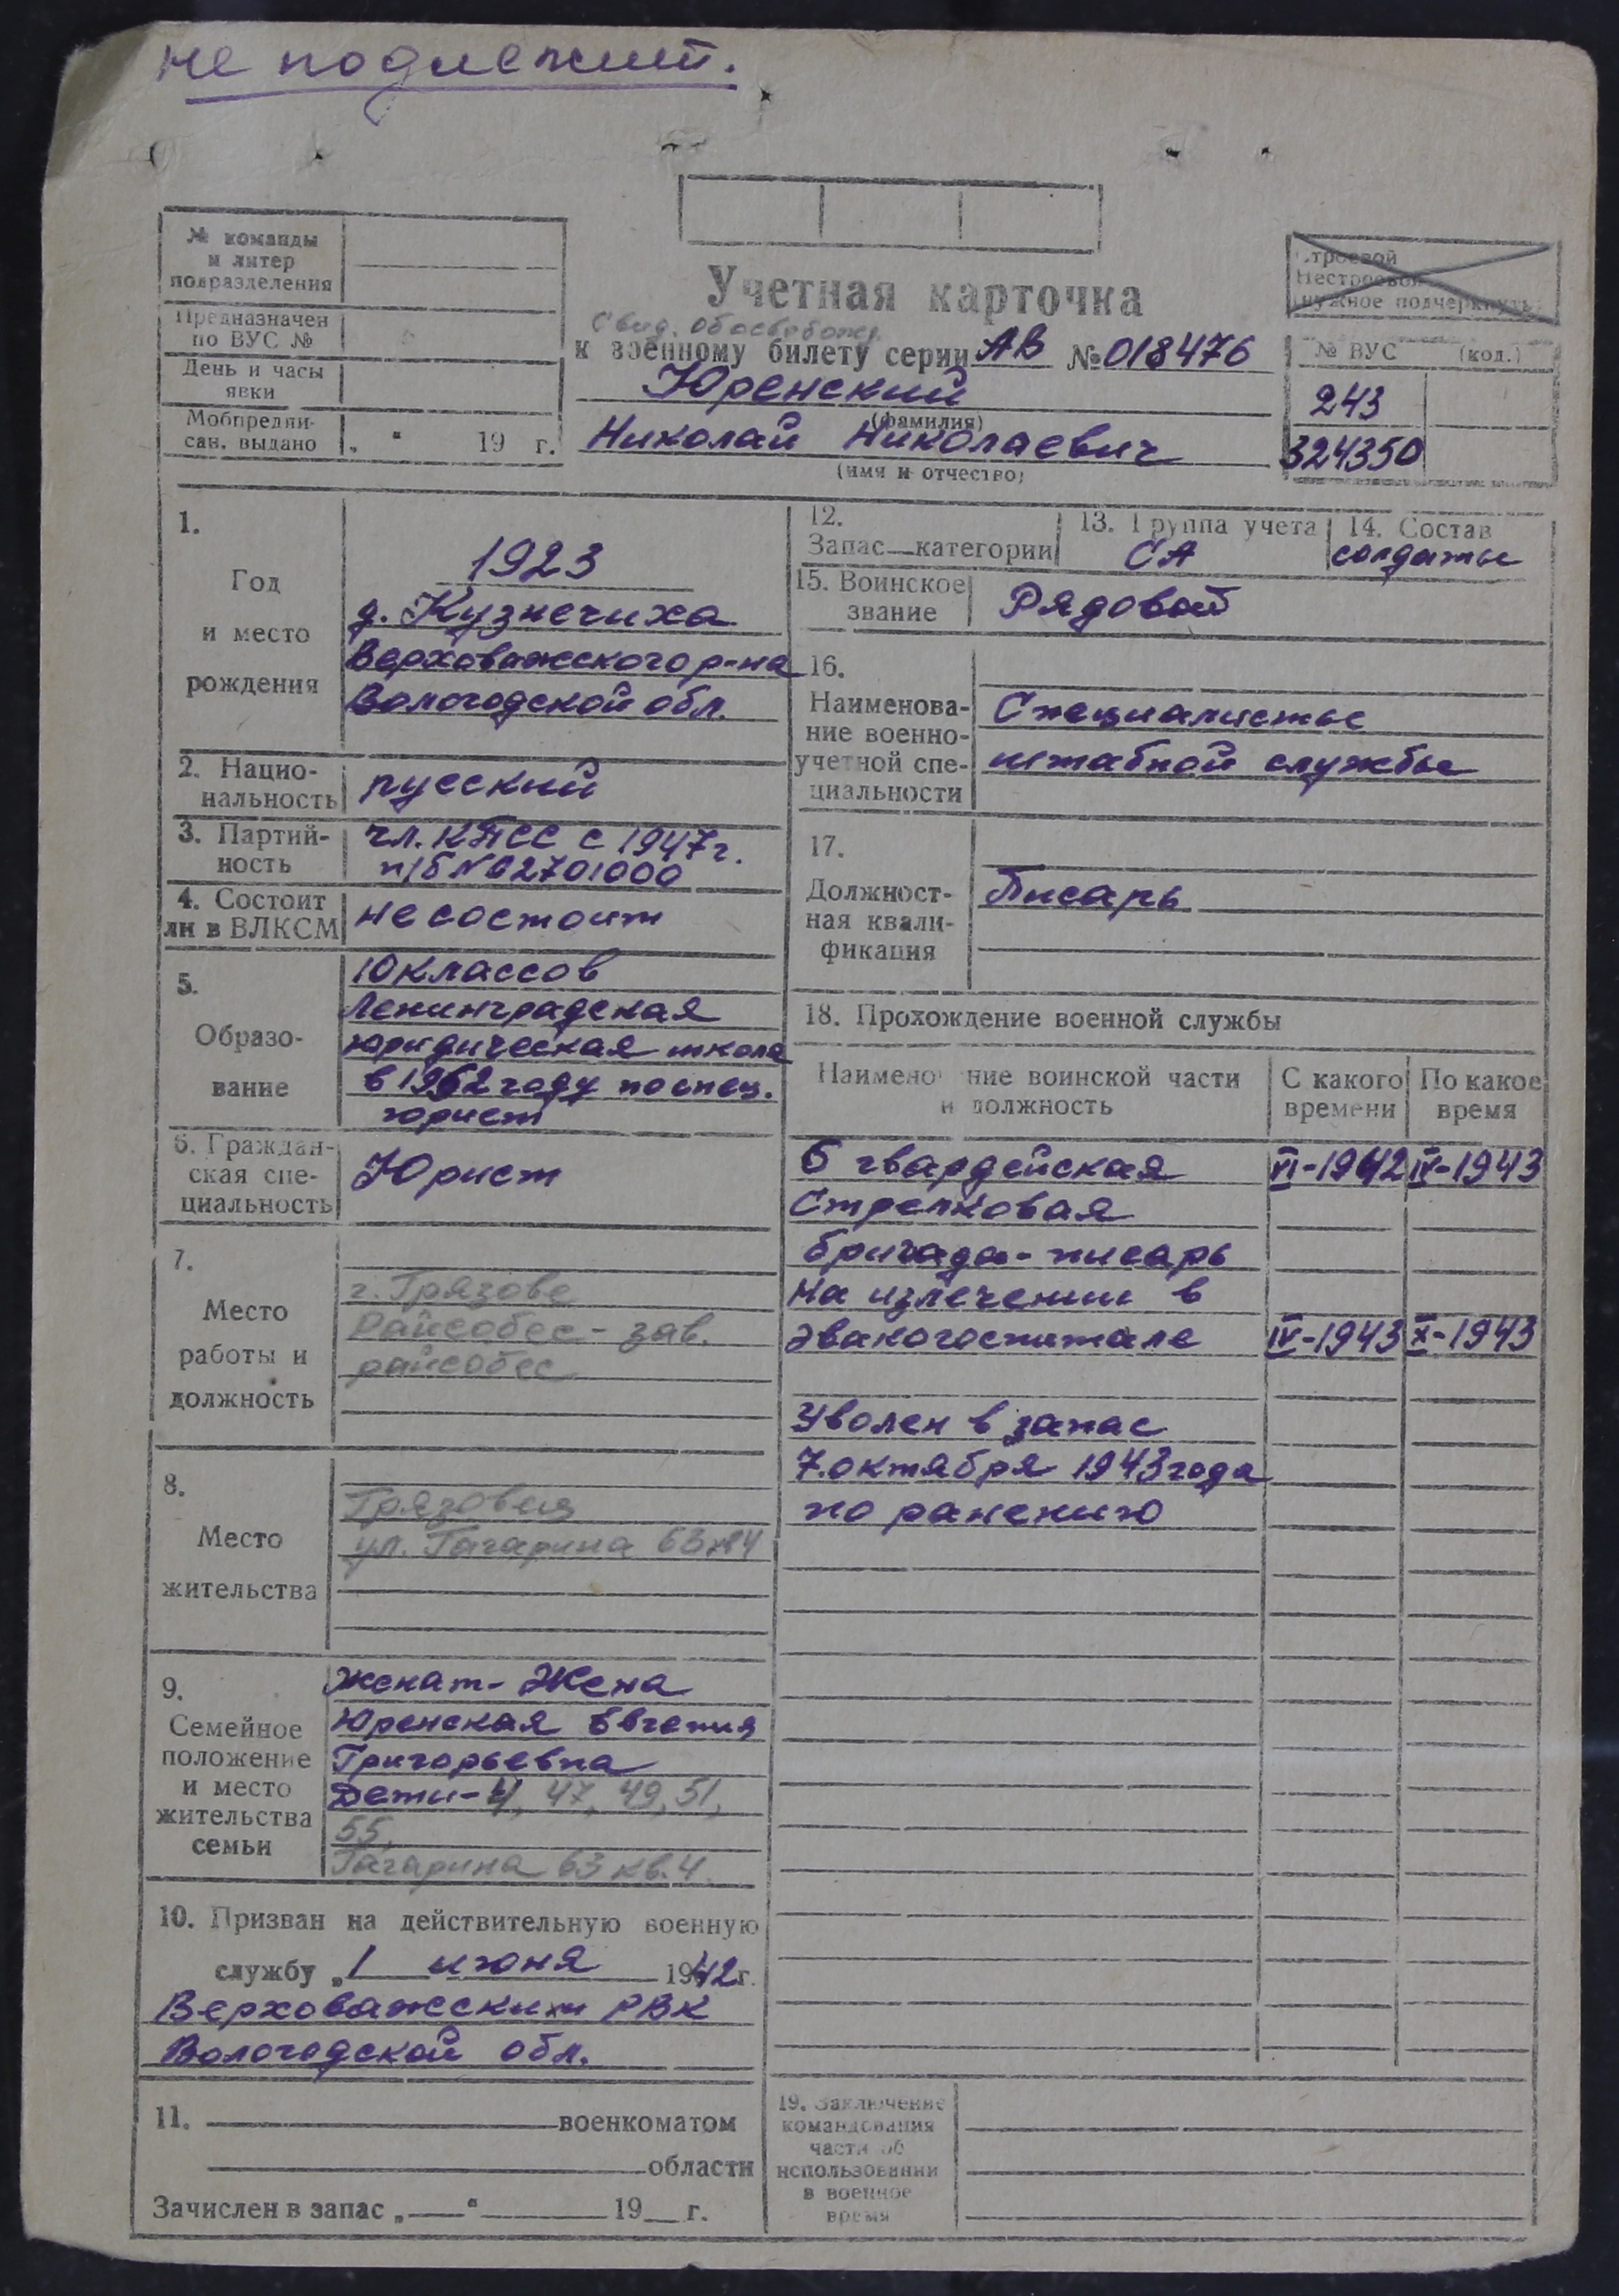 не подлежит.
№ команды
и литер
подразделения
Предназначен
по ВУС №
День и часы
явки
Мобпредпи-
сан. выдано „ “ 19 г.
Учетная карточка
Свид. обосвобожд.
к военному билету серии АВ № 018476
Юренский
(фамилия)
Николай Николаевич
(имя и отчество)
Строевой
Нестроевой
(нужное подчеркнуть)
№ ВУС (код.)
243
324350
1.
Год
и место
рождения
1923
д. Кузнечиха
Верховажского р-на
Вологодской обл.
2. Нацио-
нальность
русский
3. Партий-
ность
чл. КПСС с 1947 г.
п/б № 02701000
4. Состоит
ли в ВЛКСМ
не состоит
5.
Образо-
вание
10 классов
Ленинградская
юридическая школа
в 1952 году по спец.
юрист
6. Граждан-
ская спе-
циальность
Юрист
7.
Место
работы и
должность
г. Грязове
Райсобес - зав.
райсобес
8.
Место
жительства
Грязовец
ул. Гагарина 63 кв 4
9.
Семейное
положение
и место
жительства
семьи
Женат - Жена
Юренская Евгения
Григорьевна
Дети - 4, 47, 49, 51,
55,
Гагарина 63 кв. 4
10. Призван на действительную военную
службу „1 июня 1942 г.
Верховажским РВК
Вологодской обл.
11. военкоматом
области
Зачислен в запас „ “ 19 г.
12.
Запас категории
13. Группа учета
СА
14. Состав
солдаты
15. Воинское
звание
Рядовой
16.
Наименова-
ние военно-
учетной спе-
циальности
Специалисты
штабной службы
17.
Должност-
ная квали-
фикация
Писарь
18. Прохождение военной службы
Наименование воинской части
и должность
С какого
времени
По какое
время
6 гвардейская VI-1942 IV-1943
Стрелковая
бригада - писарь
На излечении в
эвакогоспитале IV-1943 X-1943
Уволен в запас
7. октября 1943 года
по ранению
19. Заключение
командования
части об
использовании
в военное
время